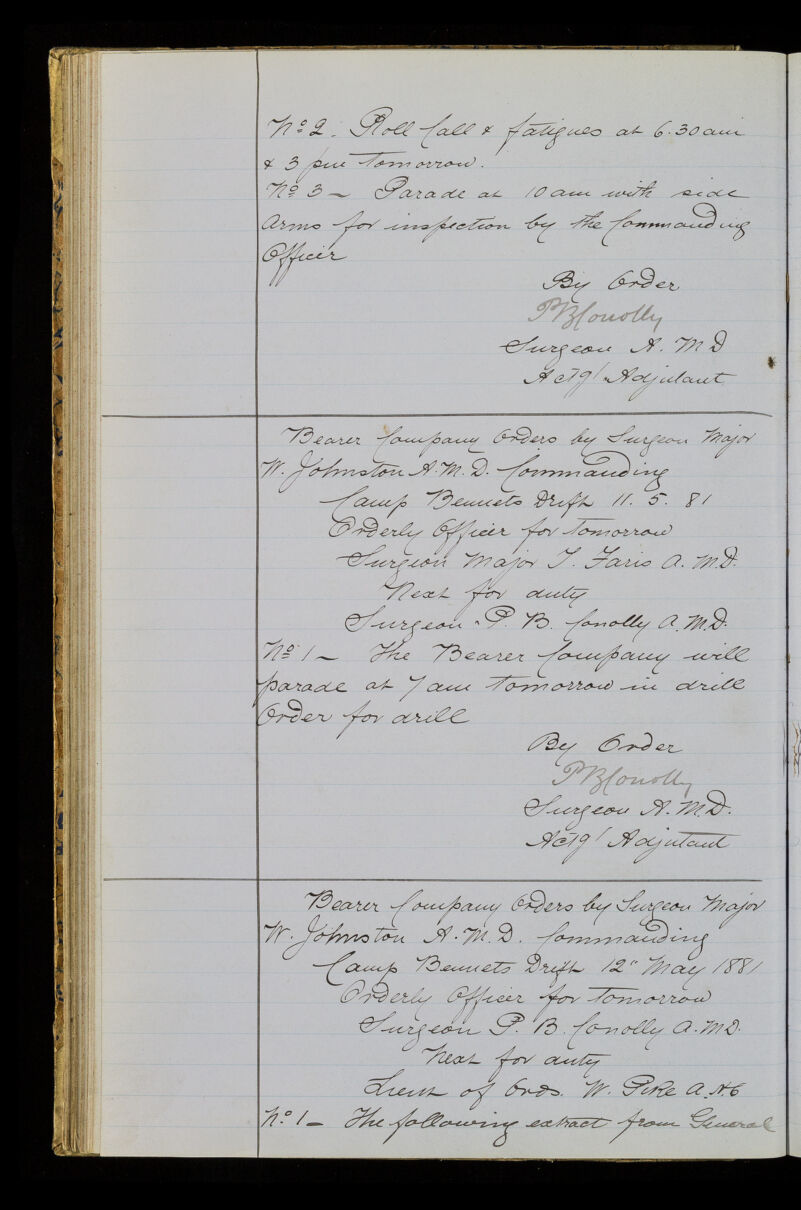 No 2. Roll Call & fatigues at 6.30 am
& 3 pm tomorrow.
No 3 - Parade at 10 am with side
Arms for inspection by the Commanding
Officer
By Order
PBConolly
Surgeon A. M D
Actg' Adjutant
Bearer Company Orders by Surgeon Major
W. Johnston A. M. D. Commanding
Camp Bennets Drift 11. 5. 81
Orderly Officer for tomorrow
Surgeon Major T. Faris A. M.D.
Next for duty
Surgeon P. B. Conolly A. M.D.
No 1 - The Bearer Company will
parade at 7 am tomorrow in drill
Order for drill
By Order
PBConolly
Surgeon A. M.D.
Actg' Adjutant
Bearer Company Orders by Surgeon Major
W. Johnston A. M. D. Commanding
Camp Bennets Drift 12" May 1881
Orderly Officer for tomorrow
Surgeon P. B. Conolly A. M.D.
Next for duty
Lieut of Ords. W. Pike A.H.C
No 1 - The following extract from General